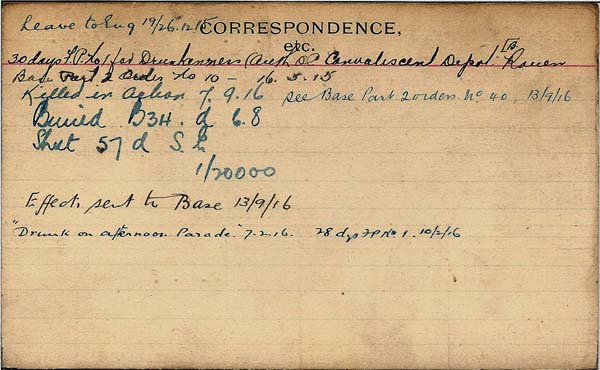 Leave to Eng 19/26.12.15
CORRESPONDENCE,
etc.
30 days F.P. No 1 for Drunkenness (Auth OC Convalescent Depot Rouen
Base Part 2 Order No 10 - 16.5.15
Killed in Action 7.9.16 See Base Part 2 orders No 40, 13/9/16
Buried B3H. d 6.8
Sheet 57 d S.E.
1/20000
Effects sent to Base 13/9/16
"Drunk on afternoon Parade" 7.2.16. 28 dys FP No 1. 10/2/16